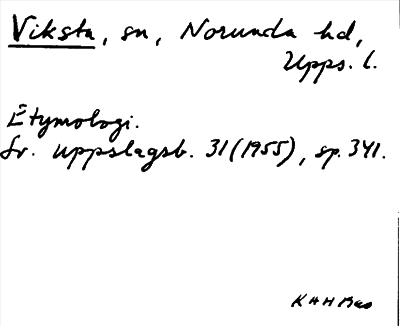 Viksta, sn, Norunda hd,
Upps. l.
Etymologi.
Sv. uppslagsb. 31 (1955), sp. 341.